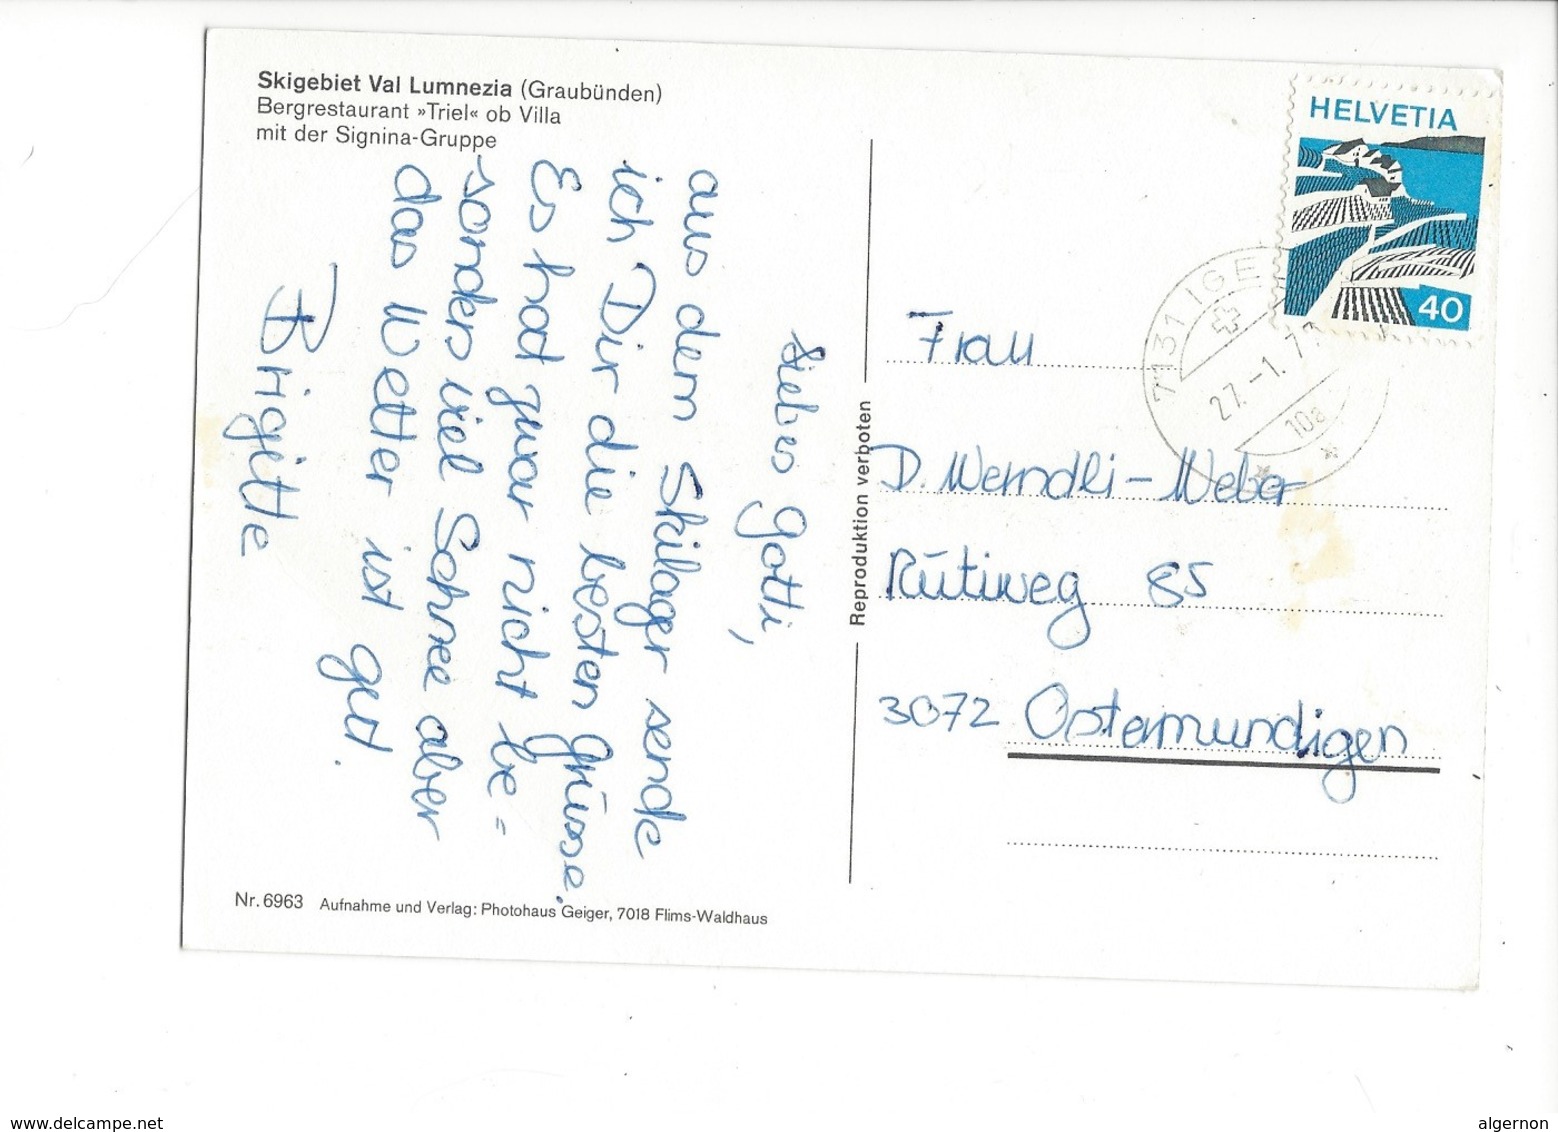 Skigebiet Val Lumnezia (Graubünden)
Bergrestaurant »Triel« ob Villa
mit der Signina-Gruppe
Liebes Gotti,
aus dem Skilager sende
ich Dir die besten Grüsse.
Es hat zwar nicht be=
sonders viel Schnee aber
das Wetter ist gut.
Brigitte
Nr. 6963 Aufnahme und Verlag: Photohaus Geiger, 7018 Flims-Waldhaus
Reproduktion verboten
HELVETIA
40
7131 IGE
27.-1.7
10a
Frau
D. Werndli-Weber
Rütiweg 85
3072 Ostermundigen
www.delcampe.net
algernon